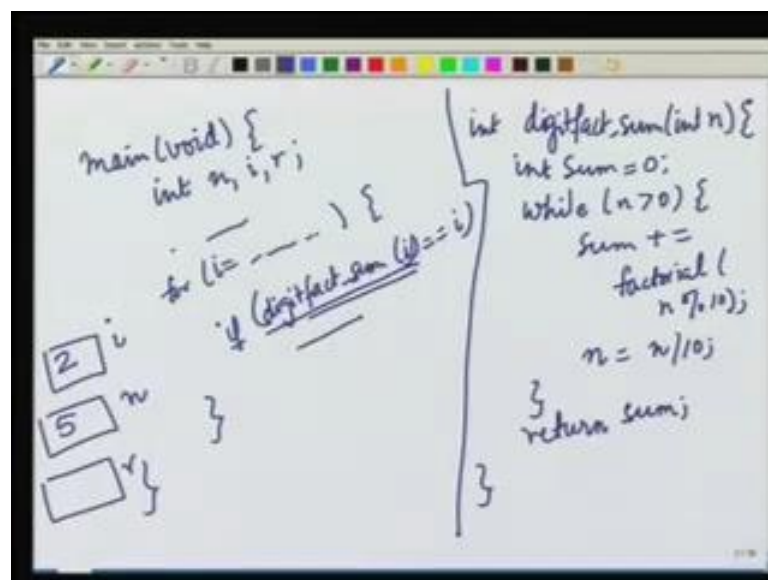 main(void) {
int n, i, r;
for (i= ---- ) {
if (digitfact_sum (i)== i)
2 i
5 n
}
r
}
int digitfact_sum(int n){
int Sum = 0;
while (n>0) {
sum +=
factorial (
n%10);
n = n/10;
}
return sum;
}